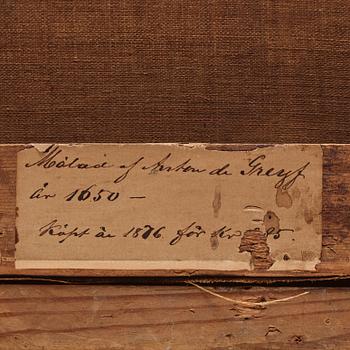 Målad af Anton de Greyf
år 1650 —
Köpt år 1876 för Kr 25.